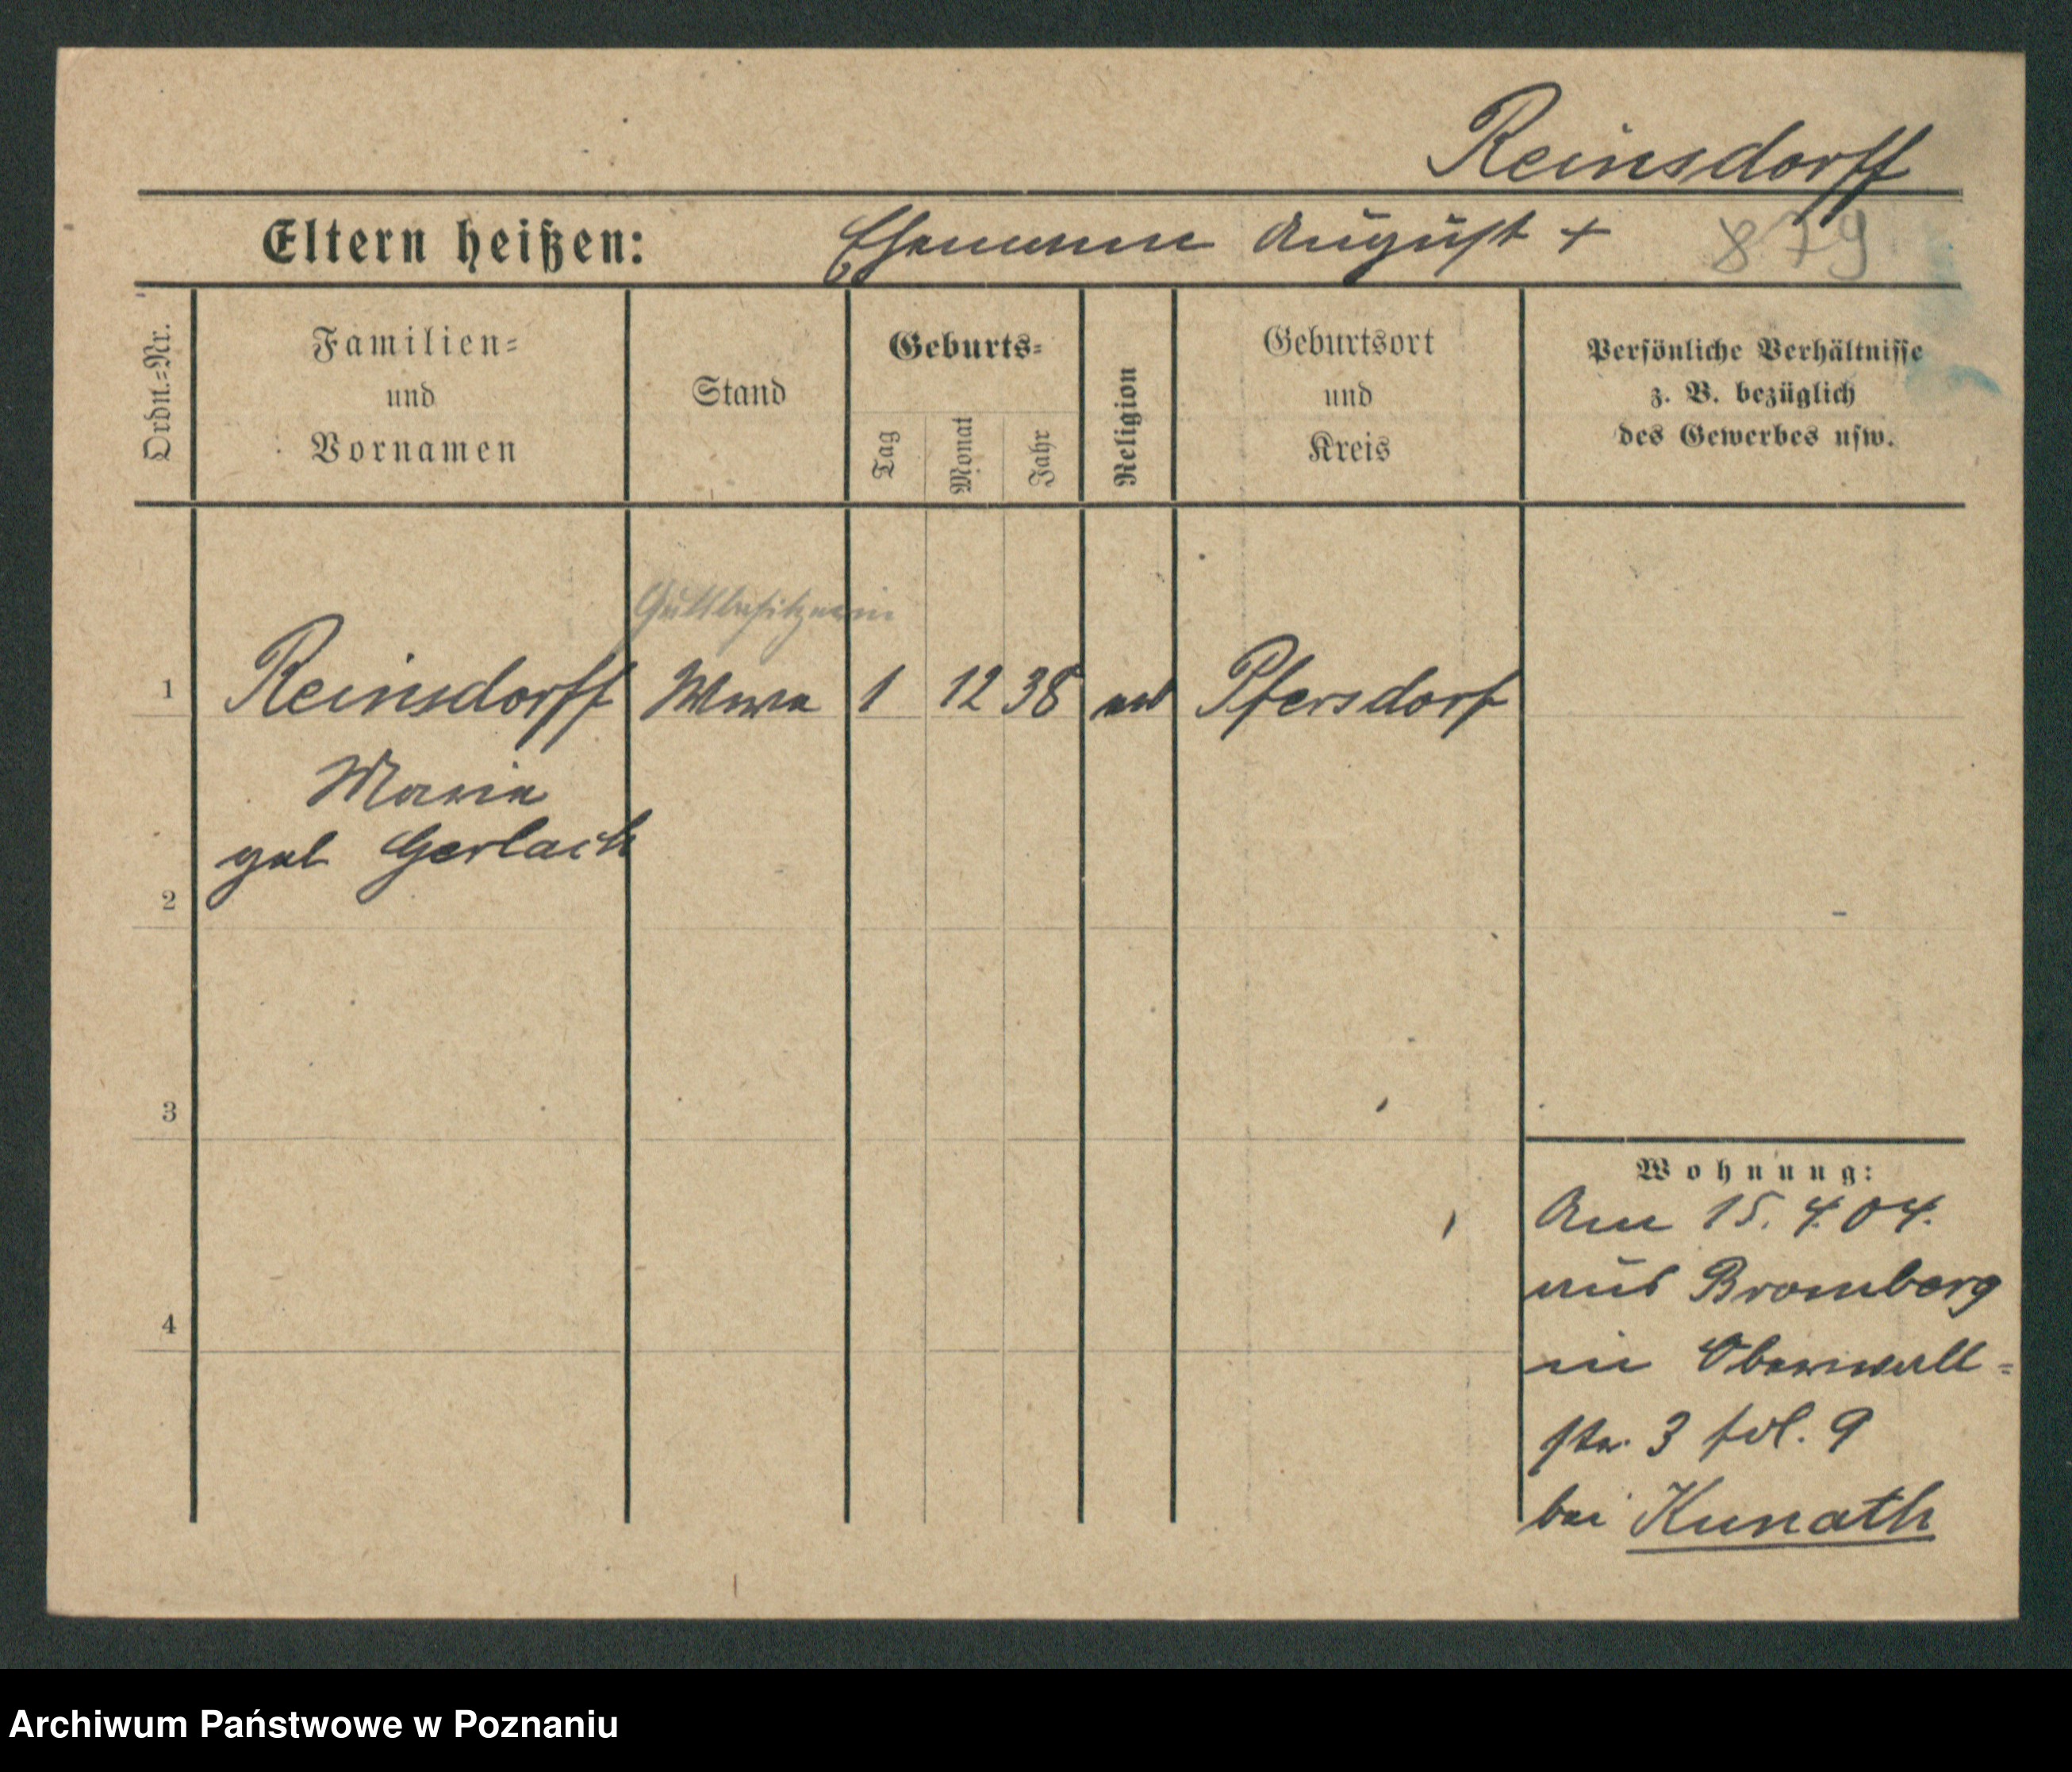 Reinsdorff
Eltern heißen: Ehemann August +
879
Ordn.=Nr.
Familien=
und
Vornamen
Stand
Geburts=
Tag
Monat
Jahr
Religion
Geburtsort
und
Kreis
Persönliche Verhältnisse
z. B. bezüglich
des Gewerbes usw.
Gutsbesitzerin
1 Reinsdorff Wwe 1 12 38 ev Pfersdorf
Marie
geb Gerlach
2
3
4
Wohnung:
Am 15. 4. 04.
aus Bromberg
in Oberwall=
str. 3 fol. 9
bei Kunath
Archiwum Państwowe w Poznaniu